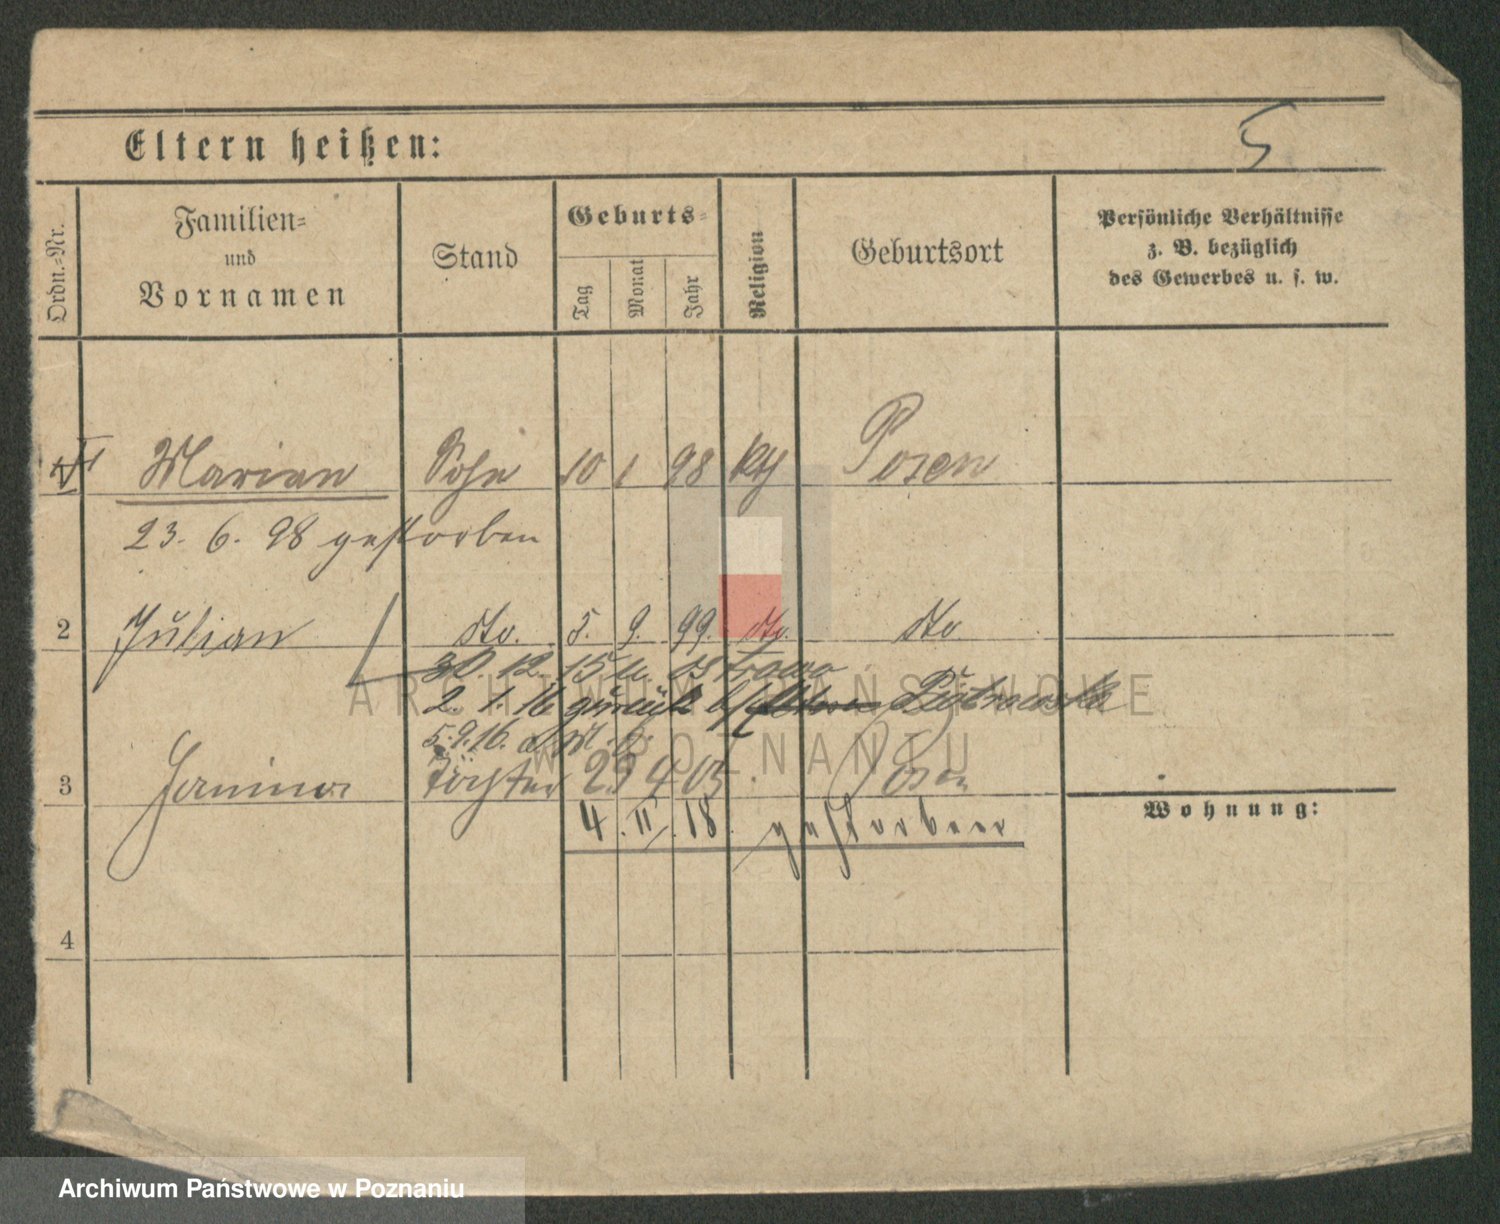 5
Eltern heißen:
Ordn.-Nr.
Familien-
und
Vornamen
Stand
Geburts-
Tag
Monat
Jahr
Religion
Geburtsort
Persönliche Verhältnisse
z. B. bezüglich
des Gewerbes u. s. w.
Marian Sohn 10 1 98 kth Posen
23. 6. 98 gestorben
2 Julian dto. 5. 9. 99. dto. dto
30. 12. 15 n. Ostrowo
2. 1. 16 zurück b/ Piotrowska
5. 9. 16.
3 Janina Tochter 23 4 03 Posen
4. II. 18. gestorben
Wohnung:
4
ARCHIWUM PAŃSTWOWE
W POZNANIU
Archiwum Państwowe w Poznaniu